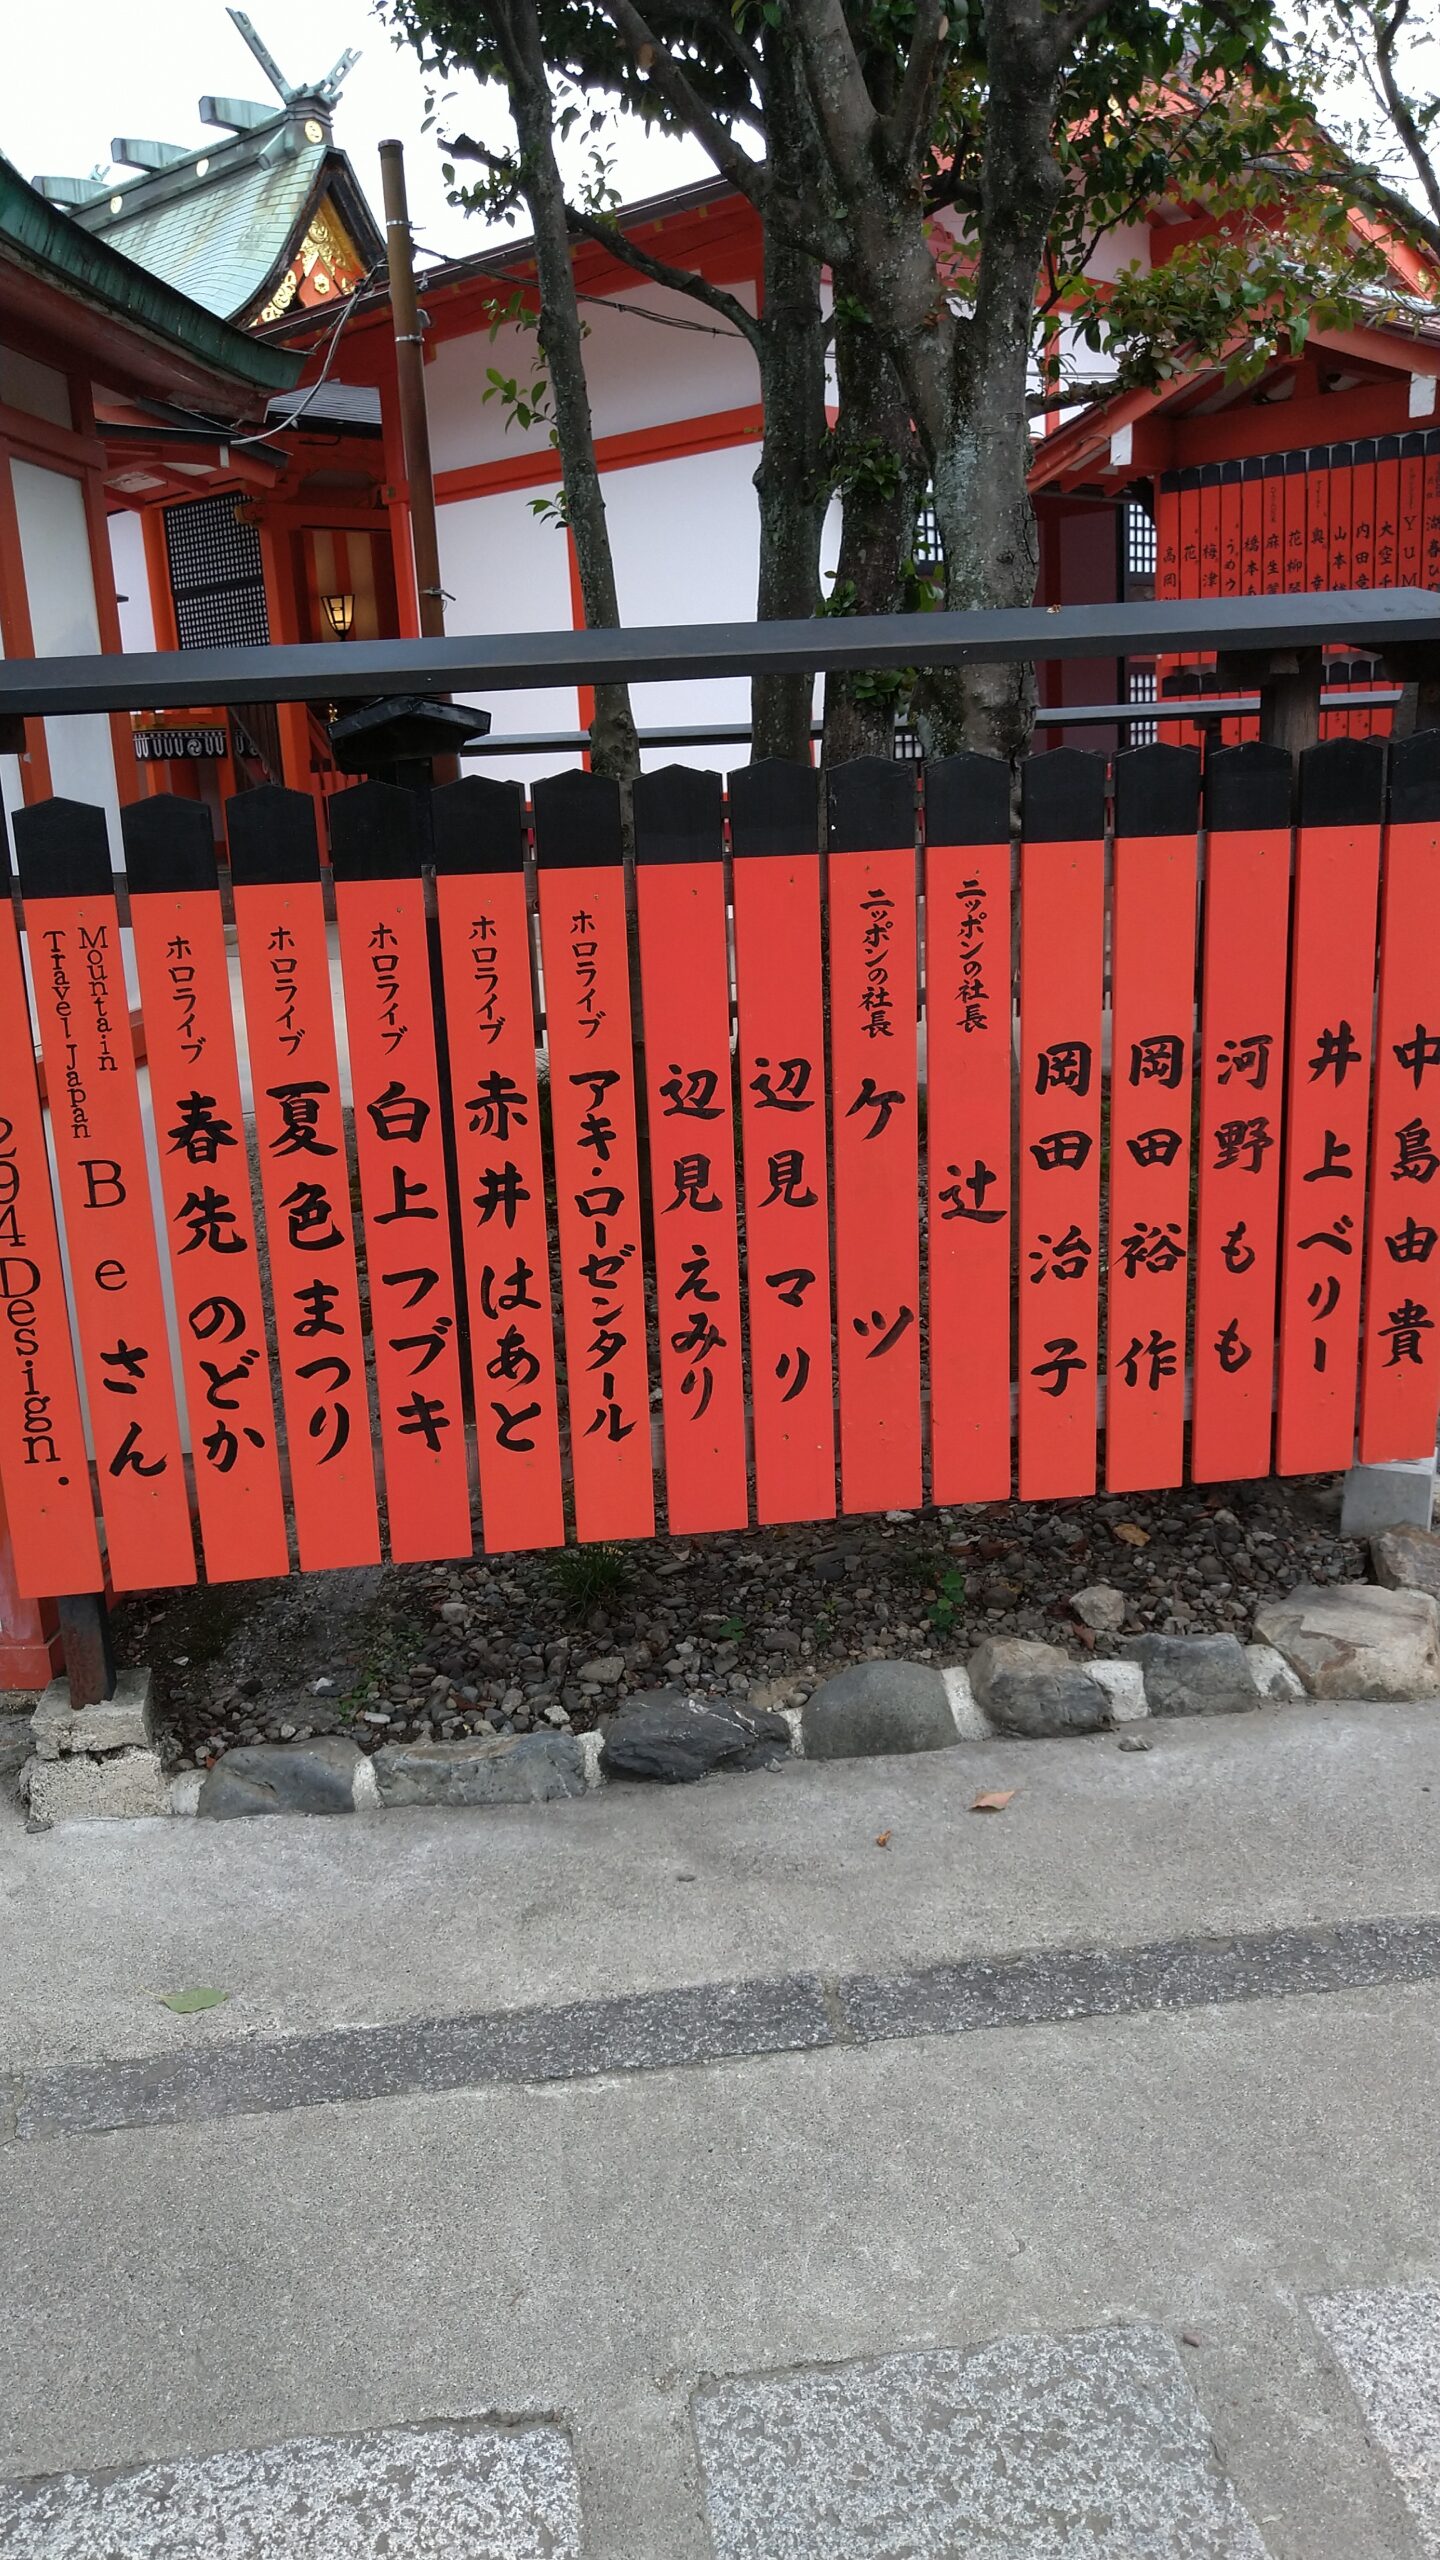 中島由貴
井上ベリー
河野もも
岡田裕作
岡田治子
ニッポンの社長 辻
ニッポンの社長 ケツ
辺見マリ
辺見えみり
ホロライブ アキ・ローゼンタール
ホロライブ 赤井はあと
ホロライブ 白上フブキ
ホロライブ 夏色まつり
ホロライブ 春先のどか
Mountain
Travel Japan
Beさん
294Design.